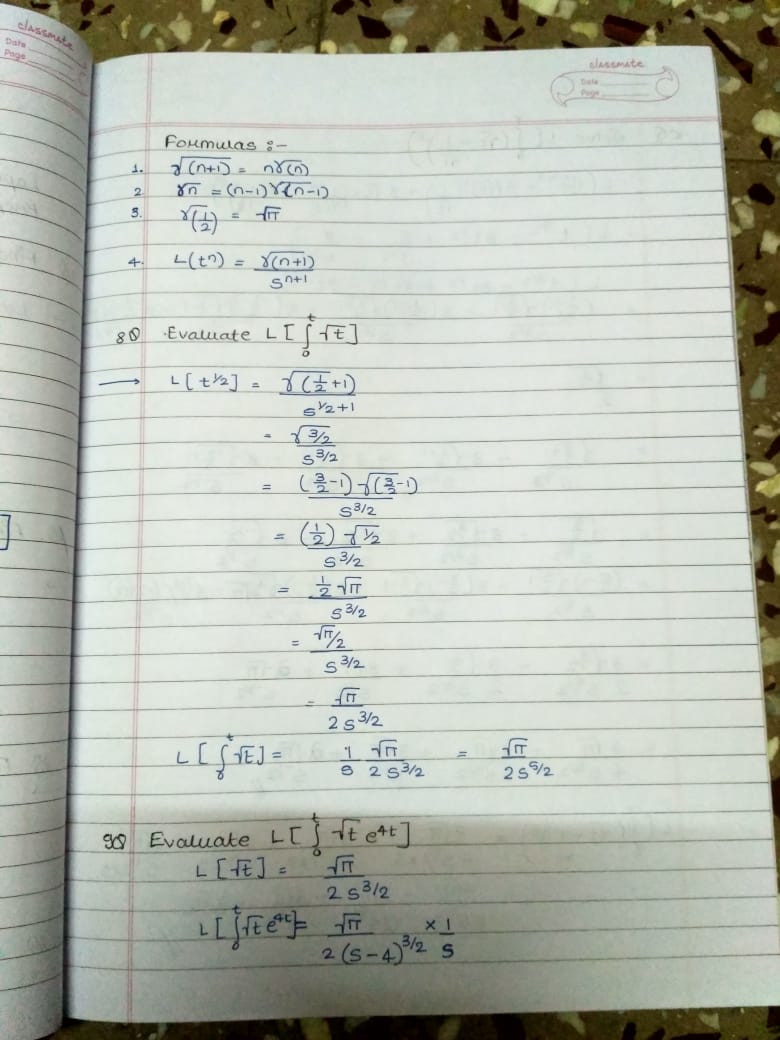 classmate
Date
Page
classmate
Date
Page
Formulas :-
1. √(n+1) = n√(n)
2. √n = (n-1)√(n-1)
3. √(1/2) = √π
4. L(tⁿ) = √(n+1) / s^(n+1)
8Q Evaluate L[∫₀ᵗ √t]
→ L[t^(1/2)] = √(1/2+1) / s^(1/2+1)
= √(3/2) / s^(3/2)
= (3/2-1)√(3/2-1) / s^(3/2)
= (1/2)√(1/2) / s^(3/2)
= 1/2 √π / s^(3/2)
= √π/2 / s^(3/2)
= √π / 2s^(3/2)
L[∫₀ᵗ √t] = 1/s √π / 2s^(3/2) = √π / 2s^(5/2)
9Q Evaluate L[∫₀ᵗ √t e^(4t)]
L[√t] = √π / 2s^(3/2)
L[∫₀ᵗ √t e^(4t)] = √π / 2(s-4)^(3/2) × 1/s